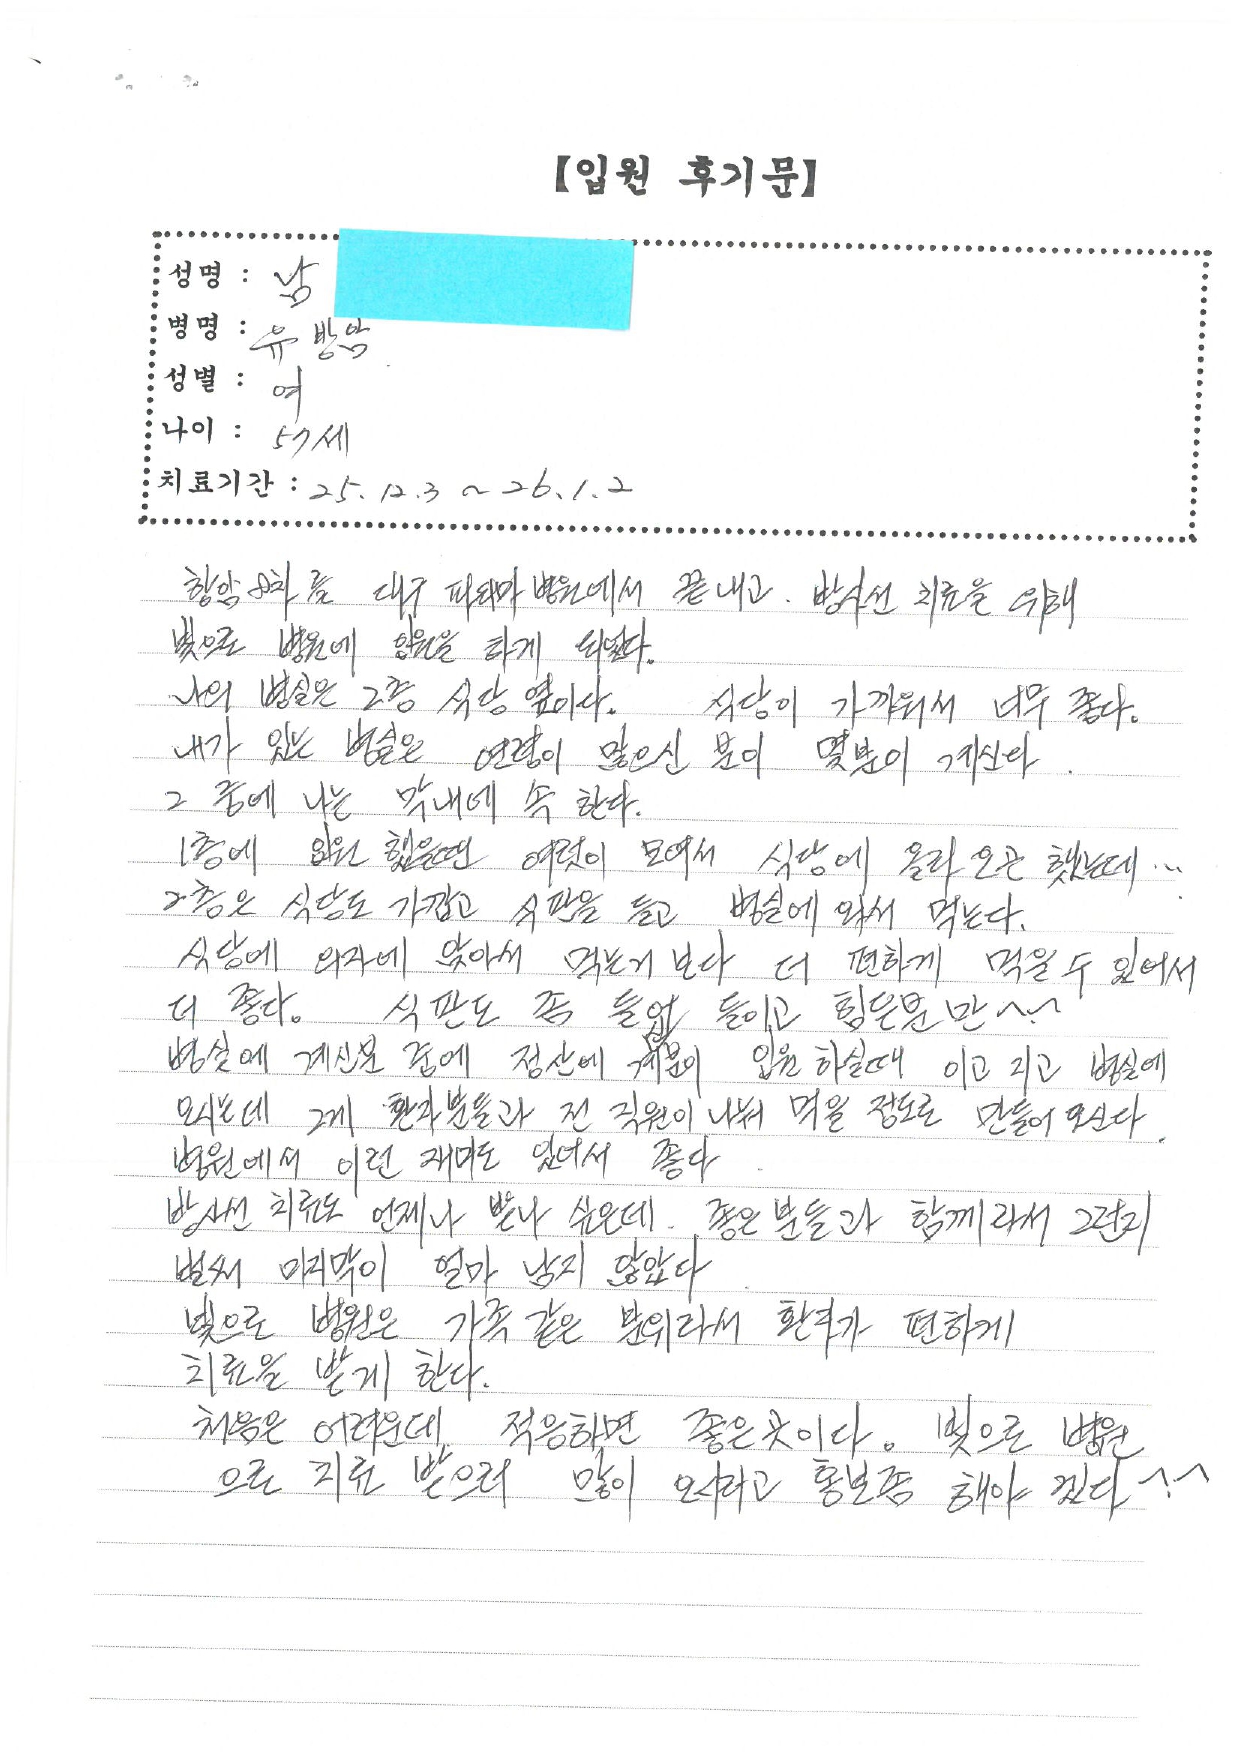 【입원 후기문】
성명 : 남
병명 : 유방암
성별 : 여
나이 : 57세
치료기간 : 25. 12. 3 ~ 26. 1. 2
항암 8차를 대구 파티마 병원에서 끝내고. 방사선 치료을 위해
빛으로 병원에 입원을 하게 되었다.
나의 병실은 2층 식당 옆이다. 식당이 가까워서 너무 좋다.
내가 있는 병실은 연령이 많으신 분이 몇분이 계신다.
그 중에 나는 막내에 속 한다.
1층에 입원 했을땐 여럿이 모여서 식당에 올라 오곤 했는데...
2층은 식당도 가깝고 식판을 들고 병실에 와서 먹는다.
식당에 의자에 앉아서 먹는거 보다 더 편하게 먹을 수 있어서
더 좋다. 식판도 좀 들고 힘든분만^^
병실에 계신분 중에 정산에 계분이 입원 하실때 이고 지고 병실에
오시는데 그게 환자분들과 전 직원이 나눠 먹을 정도로 만들어 오신다.
병원에서 이런 재미도 있어서 좋다.
방사선 치료도 언제나 받나 싶은데. 좋은분들과 함께라서 그런지
벌써 마지막이 얼마 남지 않았다
빛으로 병원은 가족 같은 분위라서 환자가 편하게
치료을 받게 한다.
처음은 어려운데 적응하면 좋은곳이다. 빛으로 병원
으로 치료 받으러 많이 오시라고 홍보좀 해야 겠다^^